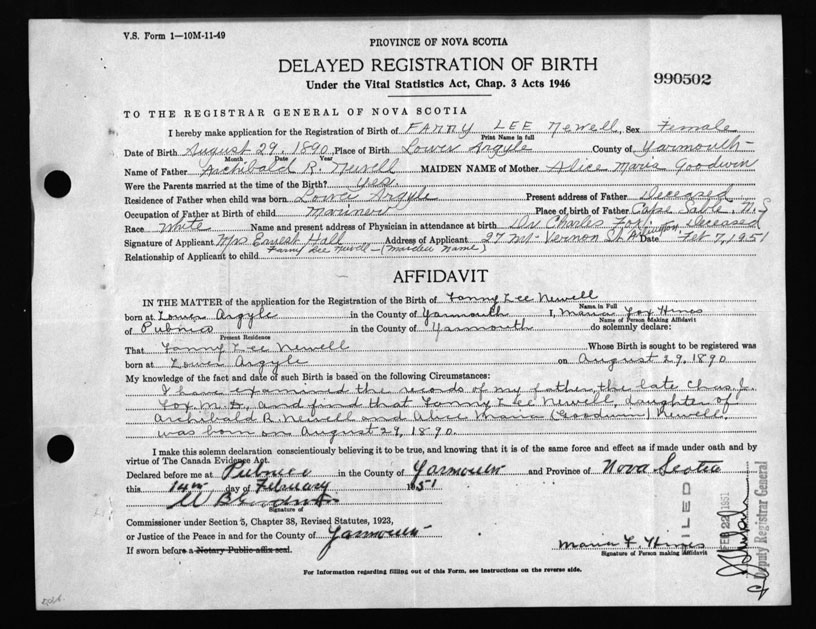 V.S. Form 1—10M-11-49
PROVINCE OF NOVA SCOTIA
DELAYED REGISTRATION OF BIRTH
Under the Vital Statistics Act, Chap. 3 Acts 1946
990502
TO THE REGISTRAR GENERAL OF NOVA SCOTIA
I hereby make application for the Registration of Birth of FANNY LEE Newell, Sex Female
Print Name in full
Date of Birth August 29, 1890 Place of Birth Lower Argyle County of Yarmouth
Month Date Year
Name of Father Archibald R. Newell MAIDEN NAME of Mother Alice Maria Goodwin
Were the Parents married at the time of the Birth? yes.
Residence of Father when child was born Lower Argyle Present address of Father Deceased
Occupation of Father at Birth of child Mariner Place of birth of Father Cape Sable, N.S
Race White Name and present address of Physician in attendance at birth Dr Charles Fox, Deceased
Signature of Applicant Mrs Ernest Hall Address of Applicant 27 Mt. Vernon St. Arlington Date Feb 7, 1951
Relationship of Applicant to child Fanny Lee Newell - (Maiden Name)
AFFIDAVIT
IN THE MATTER of the application for the Registration of the Birth of Fanny Lee Newell
Name in Full
born at Lower Argyle in the County of Yarmouth I, Maria Fox Hines
Name of Person Making Affidavit
of Pubnico in the County of Yarmouth do solemnly declare:
Present Residence
That Fanny Lee Newell Whose Birth is sought to be registered was
born at Lower Argyle on August 29, 1890
My knowledge of the fact and date of such Birth is based on the following Circumstances:
I have examined the records of my father the late Chas. J.
Fox M.D., and find that Fanny Lee Newell, daughter of
Archibald R. Newell and Alice Maria (Goodwin) Newell,
was born on August 29, 1890.
I make this solemn declaration conscientiously believing it to be true, and knowing that it is of the same force and effect as if made under oath and by
virtue of The Canada Evidence Act.
Declared before me at Pubnico in the County of Yarmouth and Province of Nova Scotia
this 14th day of February 1951
Signature of
Commissioner under Section 5, Chapter 38, Revised Statutes, 1923,
or Justice of the Peace in and for the County of Yarmouth
If sworn before a Notary Public affix seal.
Maria F. Hines
Signature of Person making Affidavit
FILED
FEB 22 1951
Deputy Registrar General
For Information regarding filling out of this Form, see instructions on the reverse side.